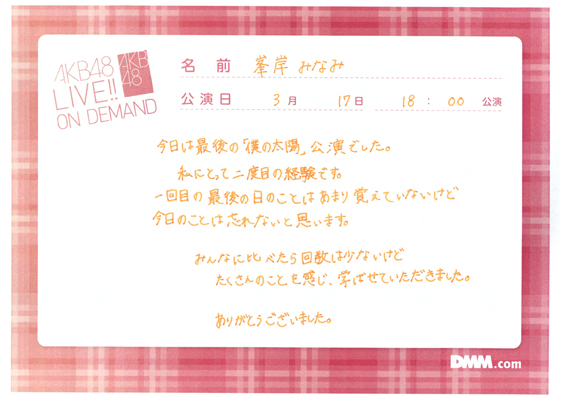 AKB48
LIVE!!
ON DEMAND
AKB
48
名 前 峯岸 みなみ
公演日 3月 17日 18:00 公演
今日は最後の「僕の太陽」公演でした。
私にとって二度目の経験です。
一回目の最後の日のことはあまり覚えていないけど
今日のことは忘れないと思います。
みんなに比べたら回数は少ないけど
たくさんのことを感じ、学ばせていただきました。
ありがとうございました。
DMM.com